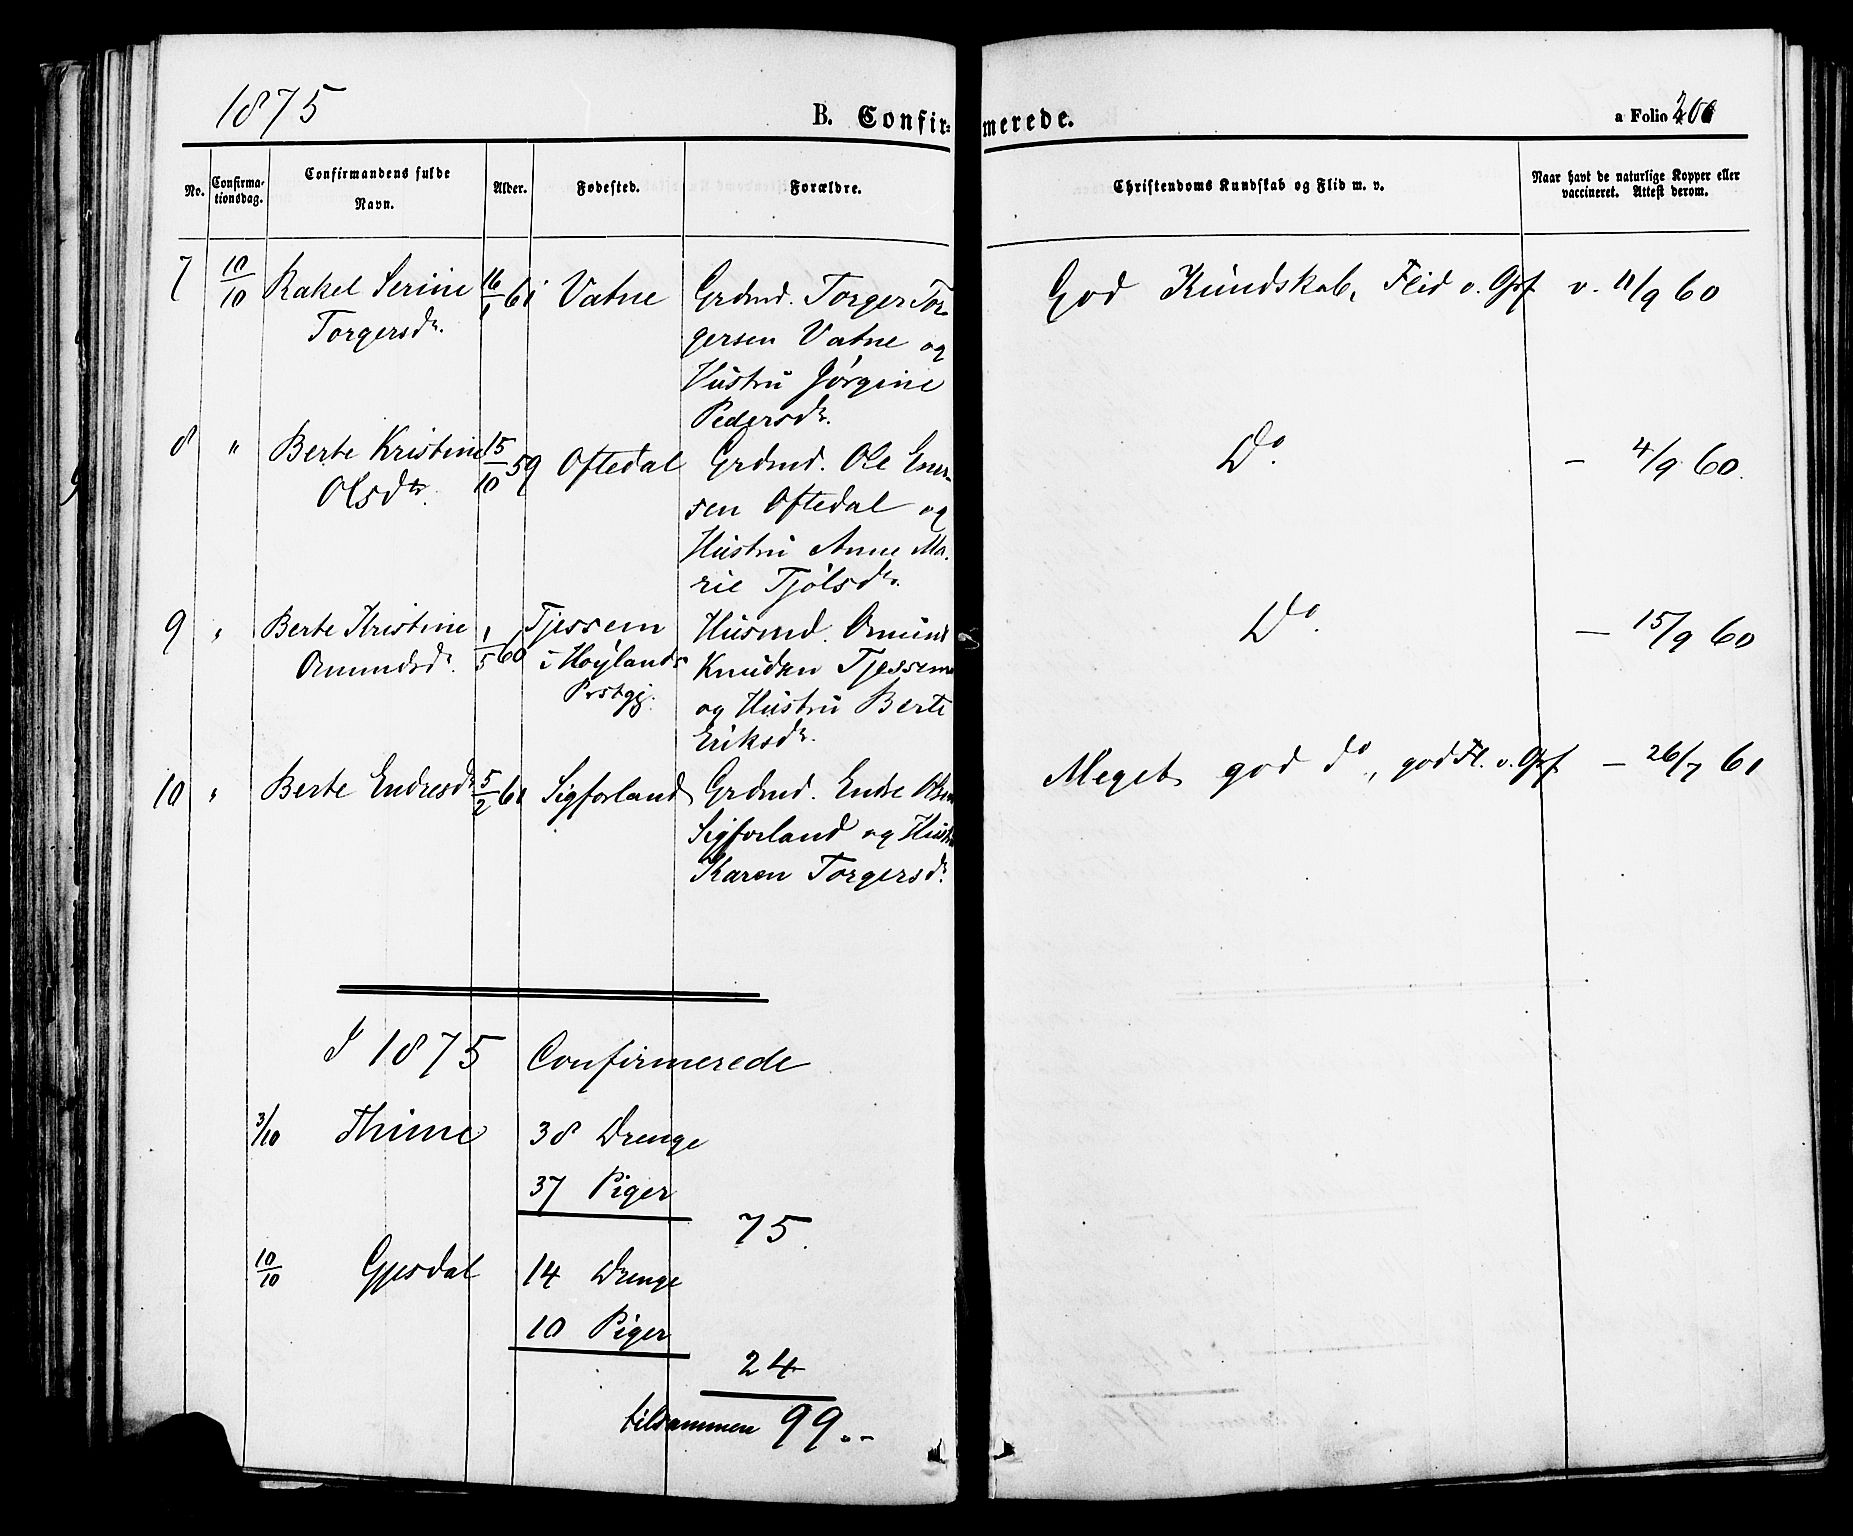 1875
B. Confirmerede.
a Folio
No.
Confirma-
tionsdag.
Confirmandens fulde
Navn.
Alder.
Fødested.
Forældre.
Christendoms Kundskab og Flid m. v.
Naar havt de naturlige Kopper eller
vaccineret. Attest derom.
7 10/10 Rakel Serine 16/1 61 Vatne Grdmd. Torger Tor- God Kundskab, Flid o. Opf v. 11/9 60
Torgersdr. gersen Vatne og
Hustru Jørgine
Pedersdr.
8 " Berte Kristine 15/10 59 Oftedal Grdmd. Ole Ener- Do. - 4/9 60.
Olsdtr. sen Oftedal og
Hustru Anne Ma-
rie Tjølsdtr.
9 " Berte Kristine 1/5 60 Tjessem Husmd. Omund Do. - 15/9 60
Omundsdr. i Høylands Knudsen Tjessem
Prstgj. og Hustru Berte
Eriksdr.
10 " Berte Endresdr 5/2 61 Sigforland Grdmd. Endre Olsen Meget god do, god Fl. o. Opf - 26/7 61
Sigforland og Hustru
Karen Torgersdr.
I 1875 Confirmerede
3/10 Thime 38 Drenge
37 Piger
75.
10/10 Gjesdal 14 Drenge
10 Piger
24
tilsammen 99.-